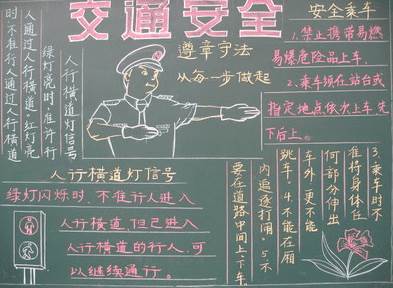 交通安全
遵章守法
从每一步做起
人行横道灯信号
绿灯亮时,准许行
人通过人行横道。红灯亮
时不准行人通过人行横道
人行横道灯信号
绿灯闪烁时,不准行人进入
人行横道,但已进入
人行横道的行人,可
以继续通行。
安全乘车
1.禁止携带易燃
易爆危险品上车。
2、乘车须在站台或
指定地点依次上车,先
下后上。
3.乘车时不
准将身体任
何部分伸出
车外,更不能
跳车。4.不能在厢
内追逐打闹。5.不
要在道路中间上、下车